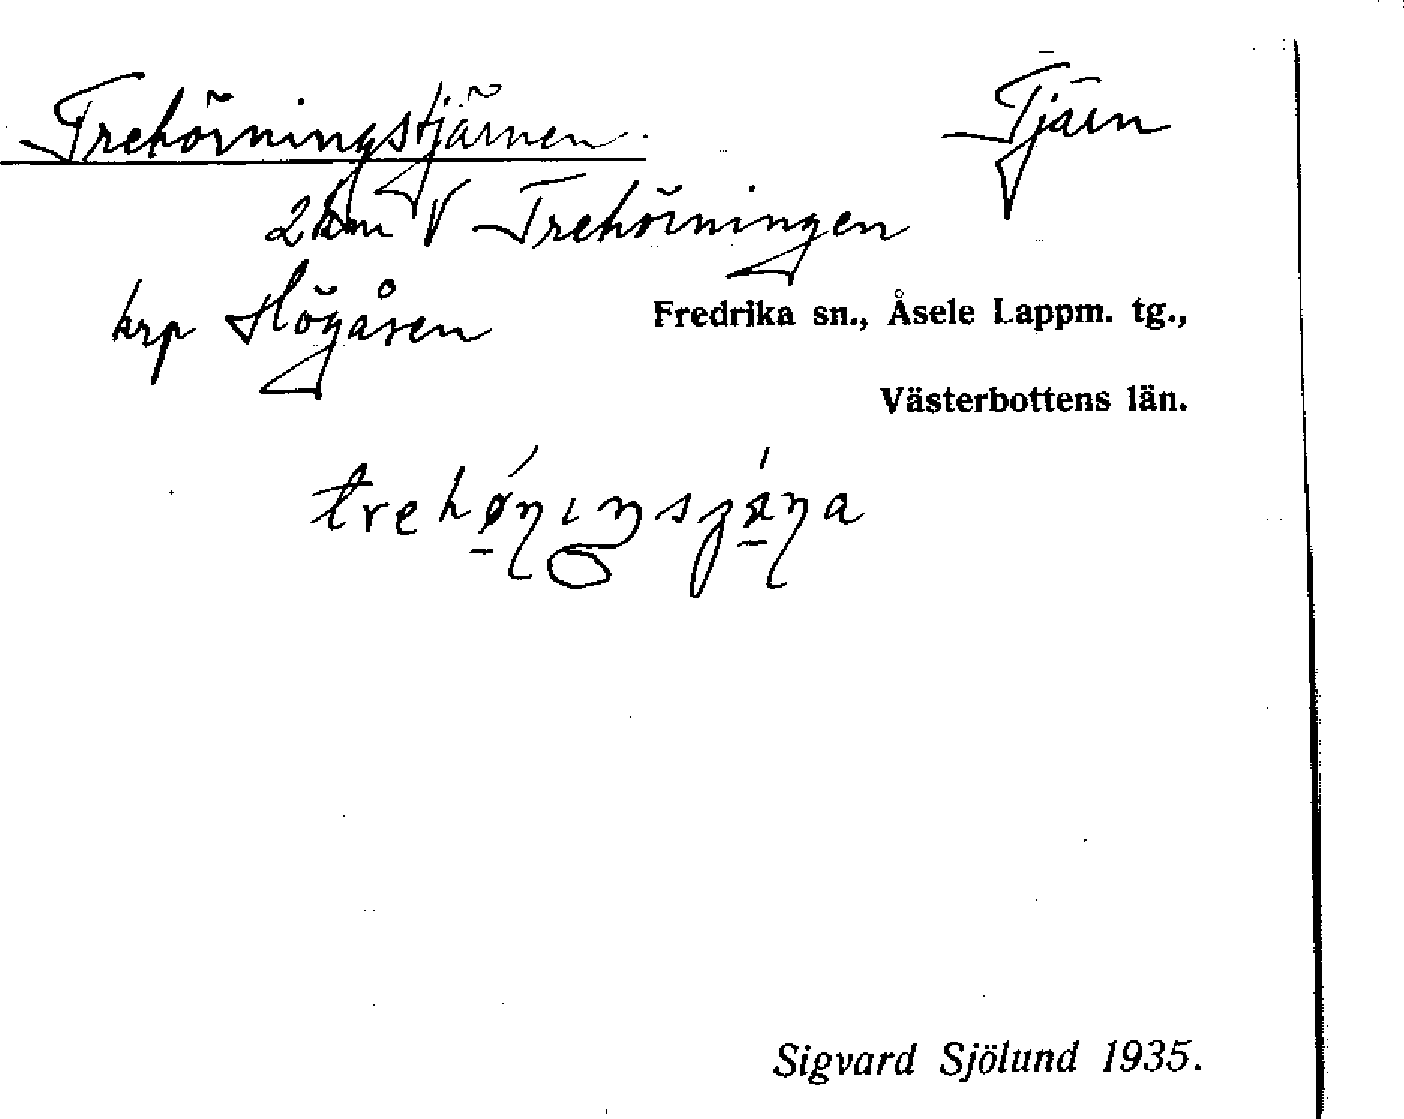 Trehörningstjärnen. Tjärn
2 km V Trehörningen
krp Högåsen
Fredrika sn., Åsele Lappm. tg.,
Västerbottens län.
Sigvard Sjölund 1935.